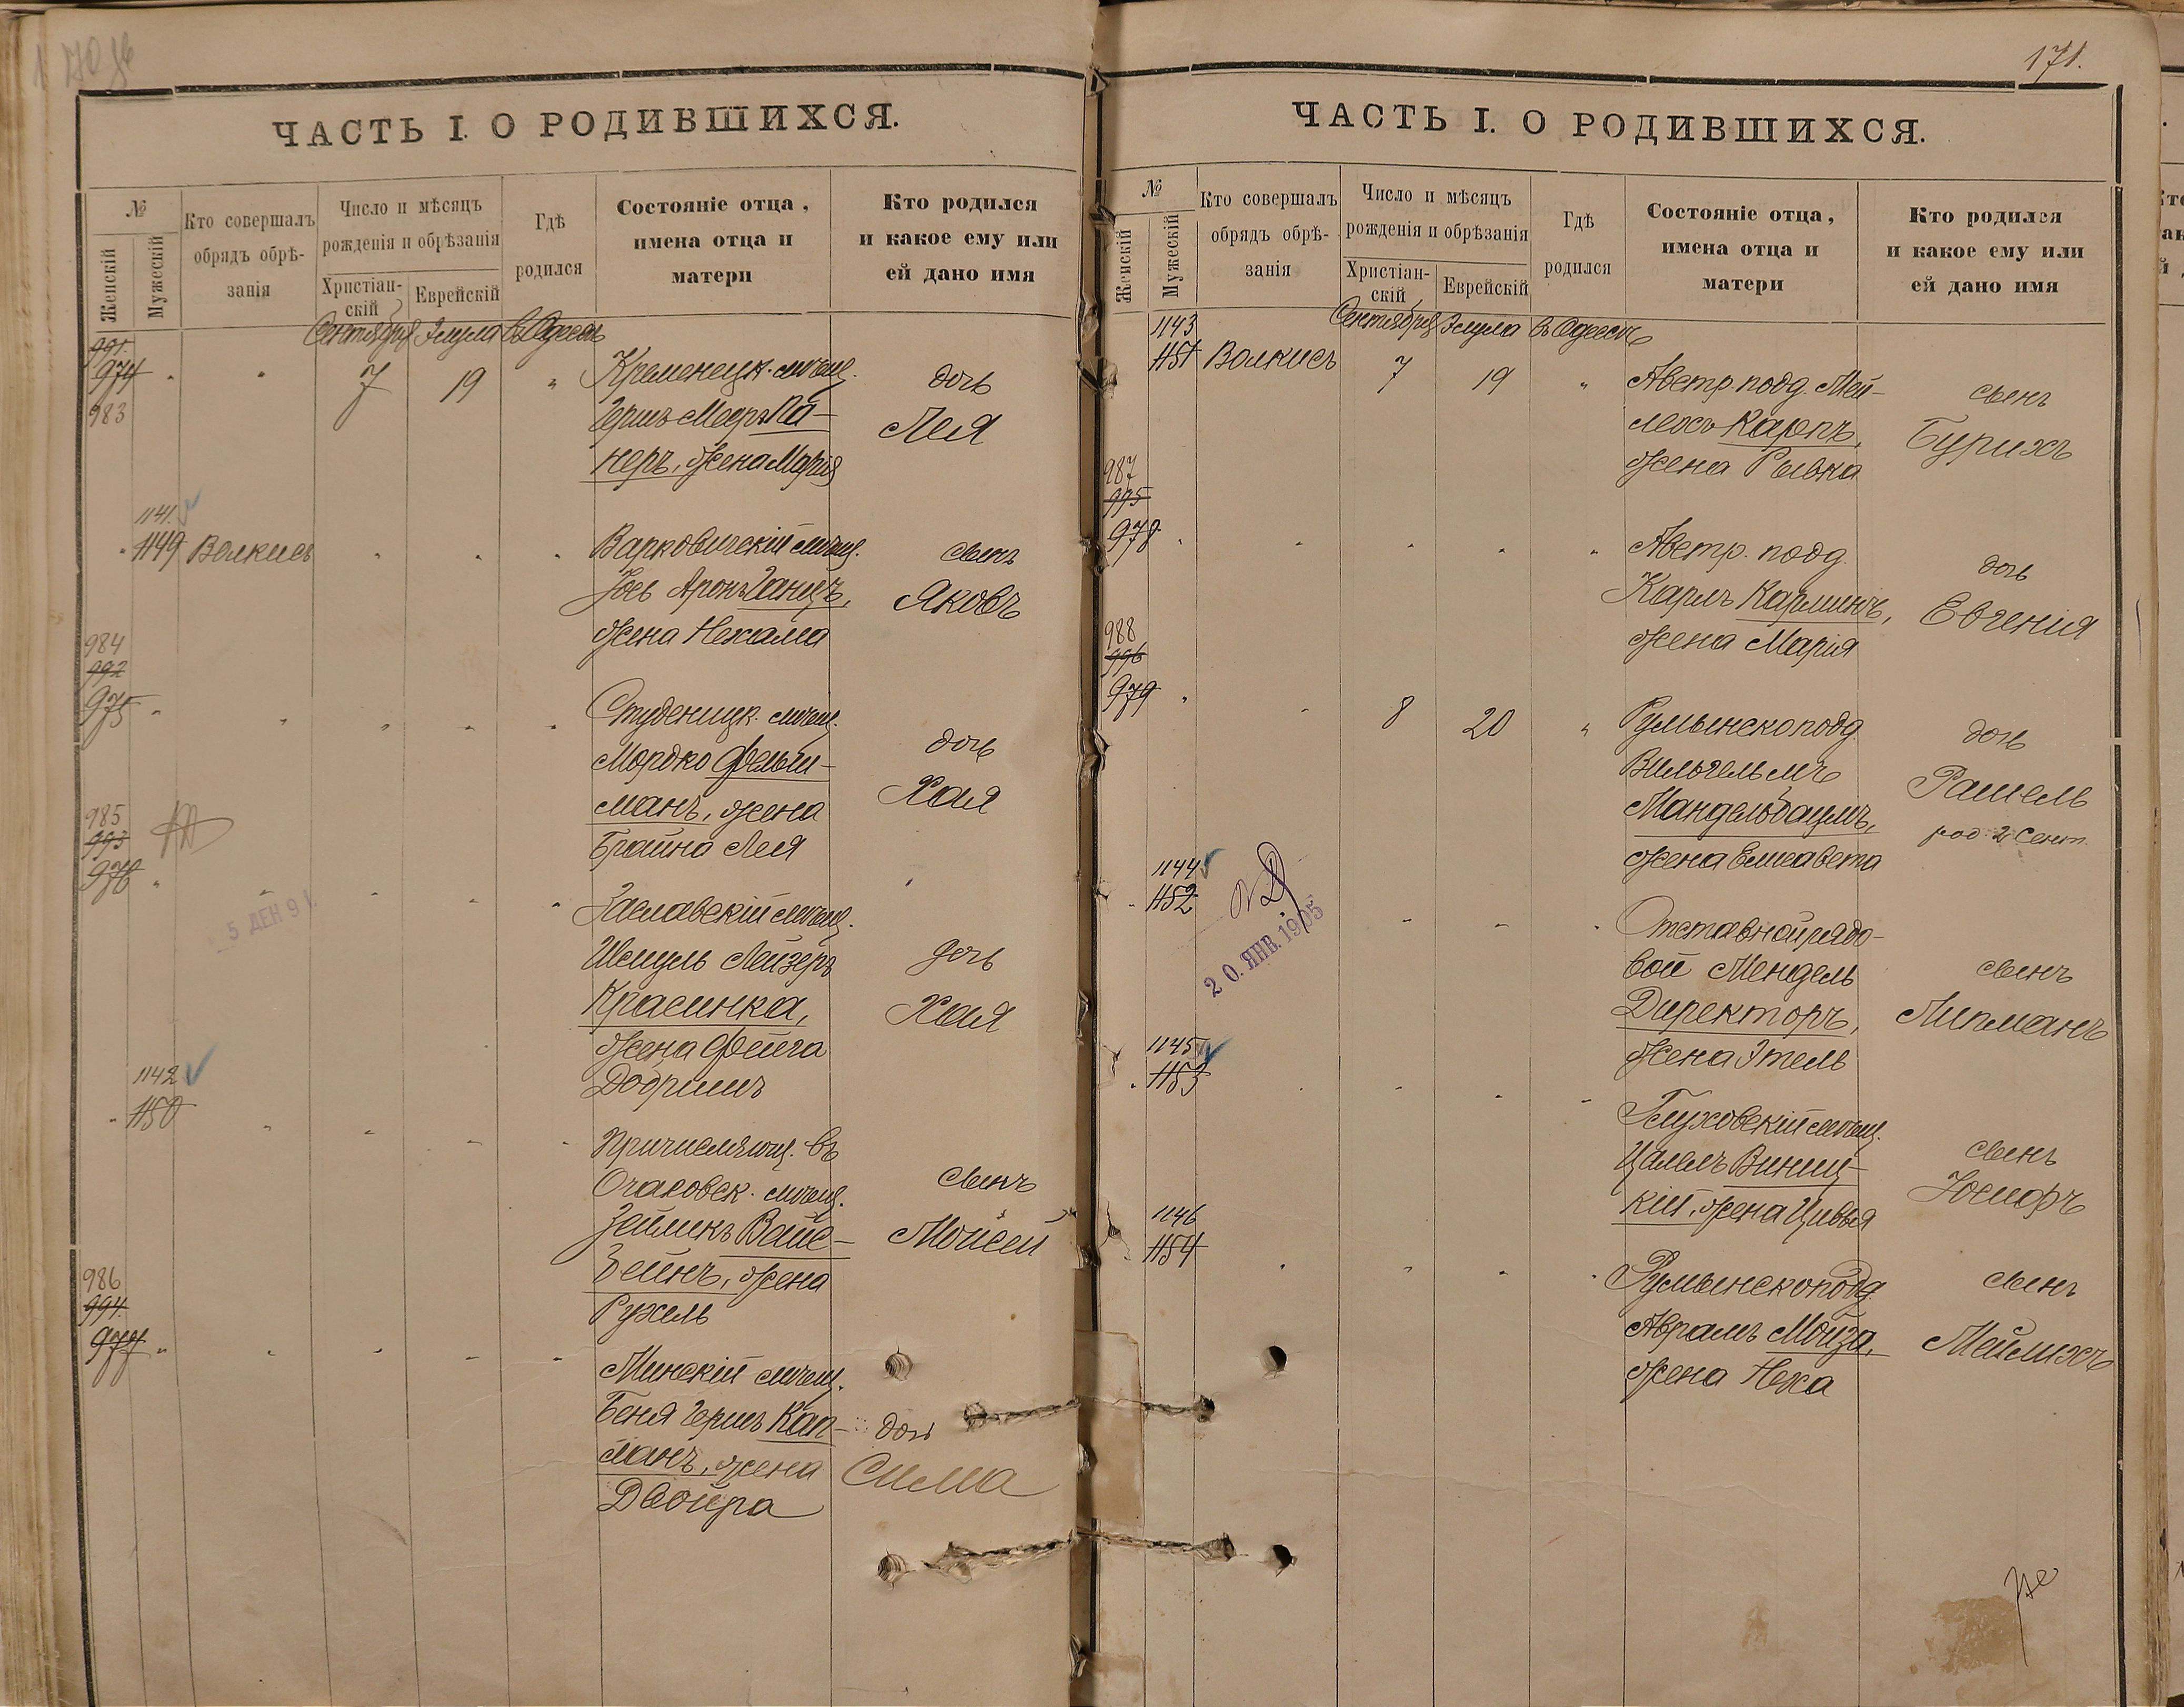 171.
ЧАСТЬ I. О РОДИВШИХСЯ.
№
Женскій
Мужескій
Кто совершалъ
обрядъ обрѣ-
занія
Число и мѣсяцъ
рожденія и обрѣзанія
Христіан-
скій
Еврейскій
Гдѣ
родился
Состояніе отца,
имена отца и
матери
Кто родился
и какое ему или
ей дано имя
Сентября Элула въ Одессѣ
991.
974
983
7 19 "
Кременецк. мѣщ.
Гершъ Мееръ Ла-
неръ, жена Марія
дочь
Лея
1141.
1149 Волкисъ
Варковичскій мѣщ.
Іось Аронъ Ганцъ,
жена Нехама
сынъ
Яковъ
984
992
975
Студеницк. мѣщ.
Мордко Фельш-
манъ, жена
Брайна Лея
дочь
Хая
985
993
976
5 ДЕН 91.
Заславскій мѣщ.
Шмуль Лейзеръ
Красинка,
жена Фейга
Добришъ
дочь
Хая
1142
1150
Причисляющ. въ
Очаковск. мѣщ.
Зейликъ Вайс-
Бейнъ, жена
Рухель
сынъ
Мойсей
986
994.
977
Минскій мѣщ.
Беня Гершъ Кап-
ланъ, жена
Двойра
дочь
Сима
ЧАСТЬ I. О РОДИВШИХСЯ.
№
Женскій
Мужескій
Кто совершалъ
обрядъ обрѣ-
занія
Число и мѣсяцъ
рожденія и обрѣзанія
Христіан-
скій
Еврейскій
Гдѣ
родился
Состояніе отца,
имена отца и
матери
Кто родился
и какое ему или
ей дано имя
Сентября Элула въ Одессѣ
1143
1151 Волкисъ 7 19 "
Австр. подд. Мей-
лехъ Карпъ,
жена Рывка
сынъ
Бурихъ
987
995
978
Австр. подд.
Карлъ Карминъ,
жена Марія
дочь
Евгенія
988
996
979
8 20 "
Румынскоподд.
Вильгельмъ
Мандельбаумъ,
жена Елисавета
дочь
Рашель
род. 2 Сент.
1144
1152
20. ЯНВ. 1905
Отставной рядо-
вой Мендель
Директоръ,
жена Этель
сынъ
Липманъ
1145
1153
Глуховскій мѣщ.
Цалелъ Виниц-
кій, жена Цивья
сынъ
Іосифъ
1146
1154
Румынскоподд.
Аврамъ Мойза,
жена Неха
сынъ
Меймихъ